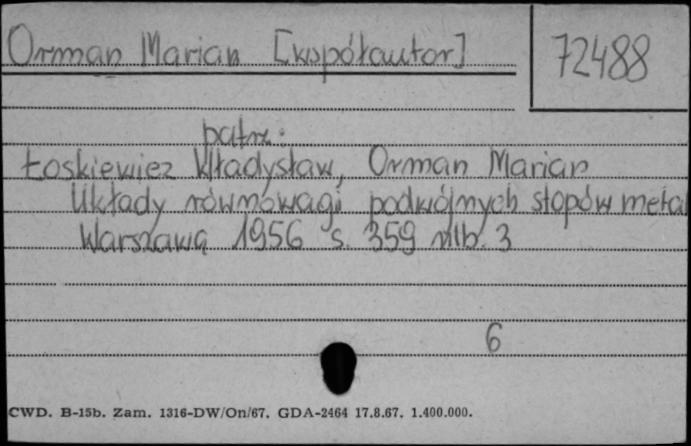 Orman Marian [współautor]
72488
patrz:
Łoskiewicz Władysław, Orman Marian
Układy równowagi podwójnych stopów metal
Warszawa 1956 s. 359 nlb. 3
6
CWD. B-15b. Zam. 1316-DW/On/67. GDA-2464 17.8.67. 1.400.000.